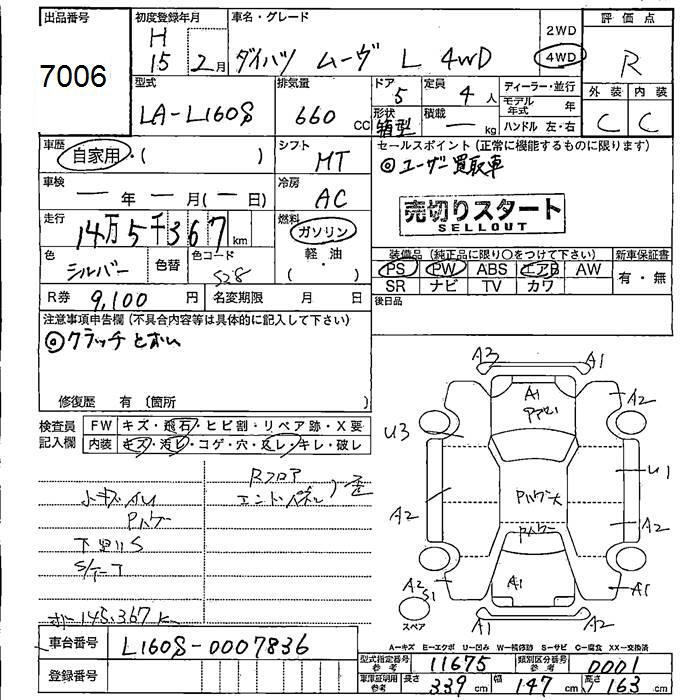 出品番号
7006
初度登録年月
H
15 2月
車名・グレード
ダイハツ ムーヴ L 4WD
2WD
4WD
評価点
R
外装 内装
C C
型式
LA-L160S
排気量
660 CC
ドア
5
形状
箱型
定員
4 人
積載
— kg
ディーラー・並行
モデル年式 年
ハンドル 左・右
車歴
自家用・( )
シフト
MT
セールスポイント (正常に機能するものに限ります)
◎ユーザー買取車
車検
— 年 — 月(— 日)
冷房
AC
売切りスタート
SELLOUT
走行
14万5千367km
燃料
ガソリン
軽・油
( ・ )
色
シルバー
色替
色コード
S28
装備品 (純正品に限り○をつけて下さい)
PS PW ABS エアB AW
SR ナビ TV カワ
新車保証書
有・無
R券 9,100 円
名変期限 月 日
後日品
注意事項申告欄 (不具合内容等は具体的に記入して下さい)
◎クラッチ とおい
修復歴 有 (箇所
検査員記入欄
FW キズ・飛石・ヒビ割・リペア跡・X要
内装 キズ・汚レ・コゲ・穴・スレ・キレ・破レ
Rフロア
エンドパネル
歪
小キズ
下回りS
145,367
A3 A1
A1
A2
U3
U1
A2
A2
A2
S1
A1
A1
A1
A2
スペア
A-キズ E-エクボ U-凹み W-補修跡 S-サビ C-腐食 XX-交換済
車台番号 L160S-0007836
型式指定番号 参考 11675
類別区分番号 参考 0001
登録番号
車庫証明用 参考 長さ 339 cm 幅 147 cm 高さ 163 cm